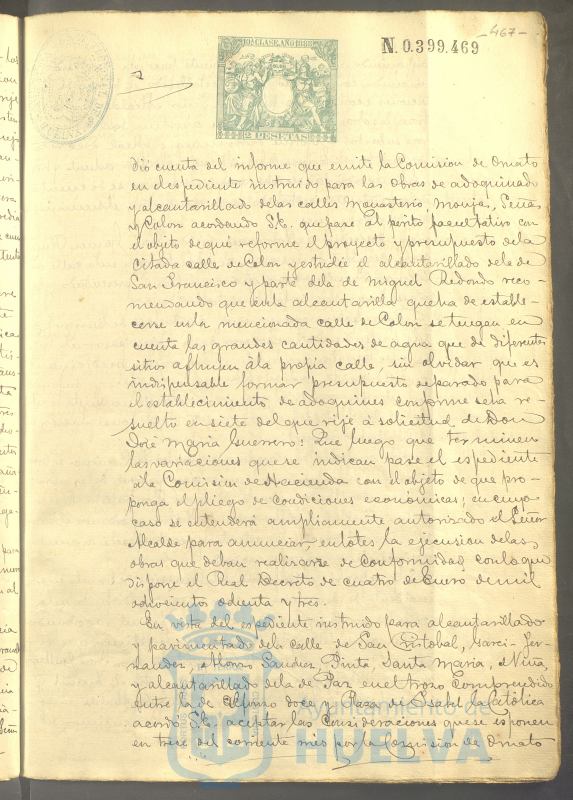 -467-
N.0.399.469
10ª CLASE, AÑO 1888
2 PESETAS
dió cuenta del informe que emite la Comision de Ornato
en el espediente instruido para las obras de adoquinado
y alcantarillado de las calles Monasterio, Monjas, Señas
y Colon acordando S.E. que pase al perito facultativo con
el objeto de que reforme el proyecto y presupuesto de la
citada calle de Colon y estudie el alcantarillado de la de
San Francisco y parte de la de Miguel Redondo reco-
mendando que en la alcantarilla que ha de estable-
cerse en la mencionada calle de Colon se tengan en
cuenta las grandes cantidades de agua que de diferentes
sitios afluyen á la propia calle, sin olvidar que es
indispensable formar presupuesto separado para
el establecimiento de adoquines conforme se ha re-
suelto en siete del que rije á solicitud de Don
José Maria Guerrero: Que luego que terminen
las variaciones que se indican pase el espediente
á la Comision de Hacienda con el objeto de que pro-
ponga el pliego de condiciones económicas; en cuyo
caso se entenderá ampliamente autorizado el Señor
Alcalde para anunciar, en lotes la ejecucion de las
obras que deban realizarse de conformidad con lo que
dispone el Real Decreto de cuatro de Enero de mil
ochocientos ochenta y tres.
En vista del espediente instruido para alcantarillado
y pavimentado de la calle de San Cristobal, Garci-Fer-
nandez, Alonso Sanchez, Pinta, Santa Maria, Niña,
y alcantarillado de la de Paz en el trozo comprendido
entre la de Alfonso doce y Plaza de Isabel la Católica
acordó S.E. aceptar las consideraciones que se esponen
en trece del corriente mes por la Comision de Ornato
Ayuntamiento de
HUELVA